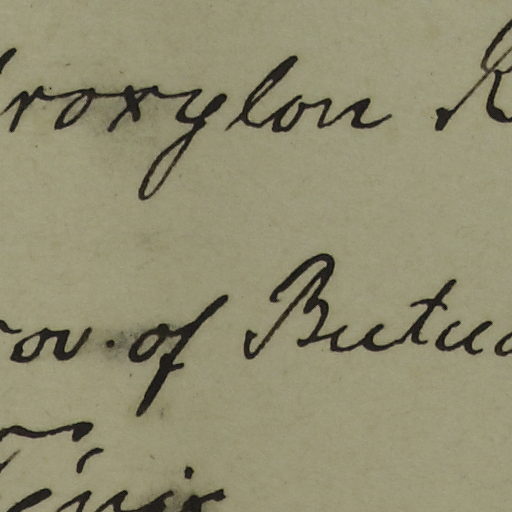 roxylon R
rov. of Butua